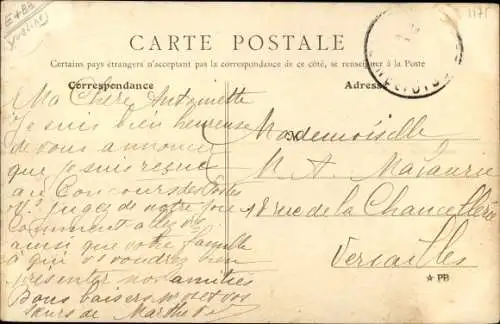 E+B2
1175
CARTE POSTALE
Certains pays étrangers n'acceptant pas la correspondance de ce côté, se renseigner à la Poste
Correspondance
Adresse
Ma Chère Antoinette
Je suis bien heureuse
de vous annoncer
que je suis reçue
au Concours des Postes
Jugez de notre joie
Comment allez vs
ainsi que votre famille
à qui vs voudrez bien
présenter nos amitiés
Bons baisers pr et vos
sœurs de Marthe
Mademoiselle
M A. Malaurie
18 rue de la Chancellerie
Versailles
★ PB